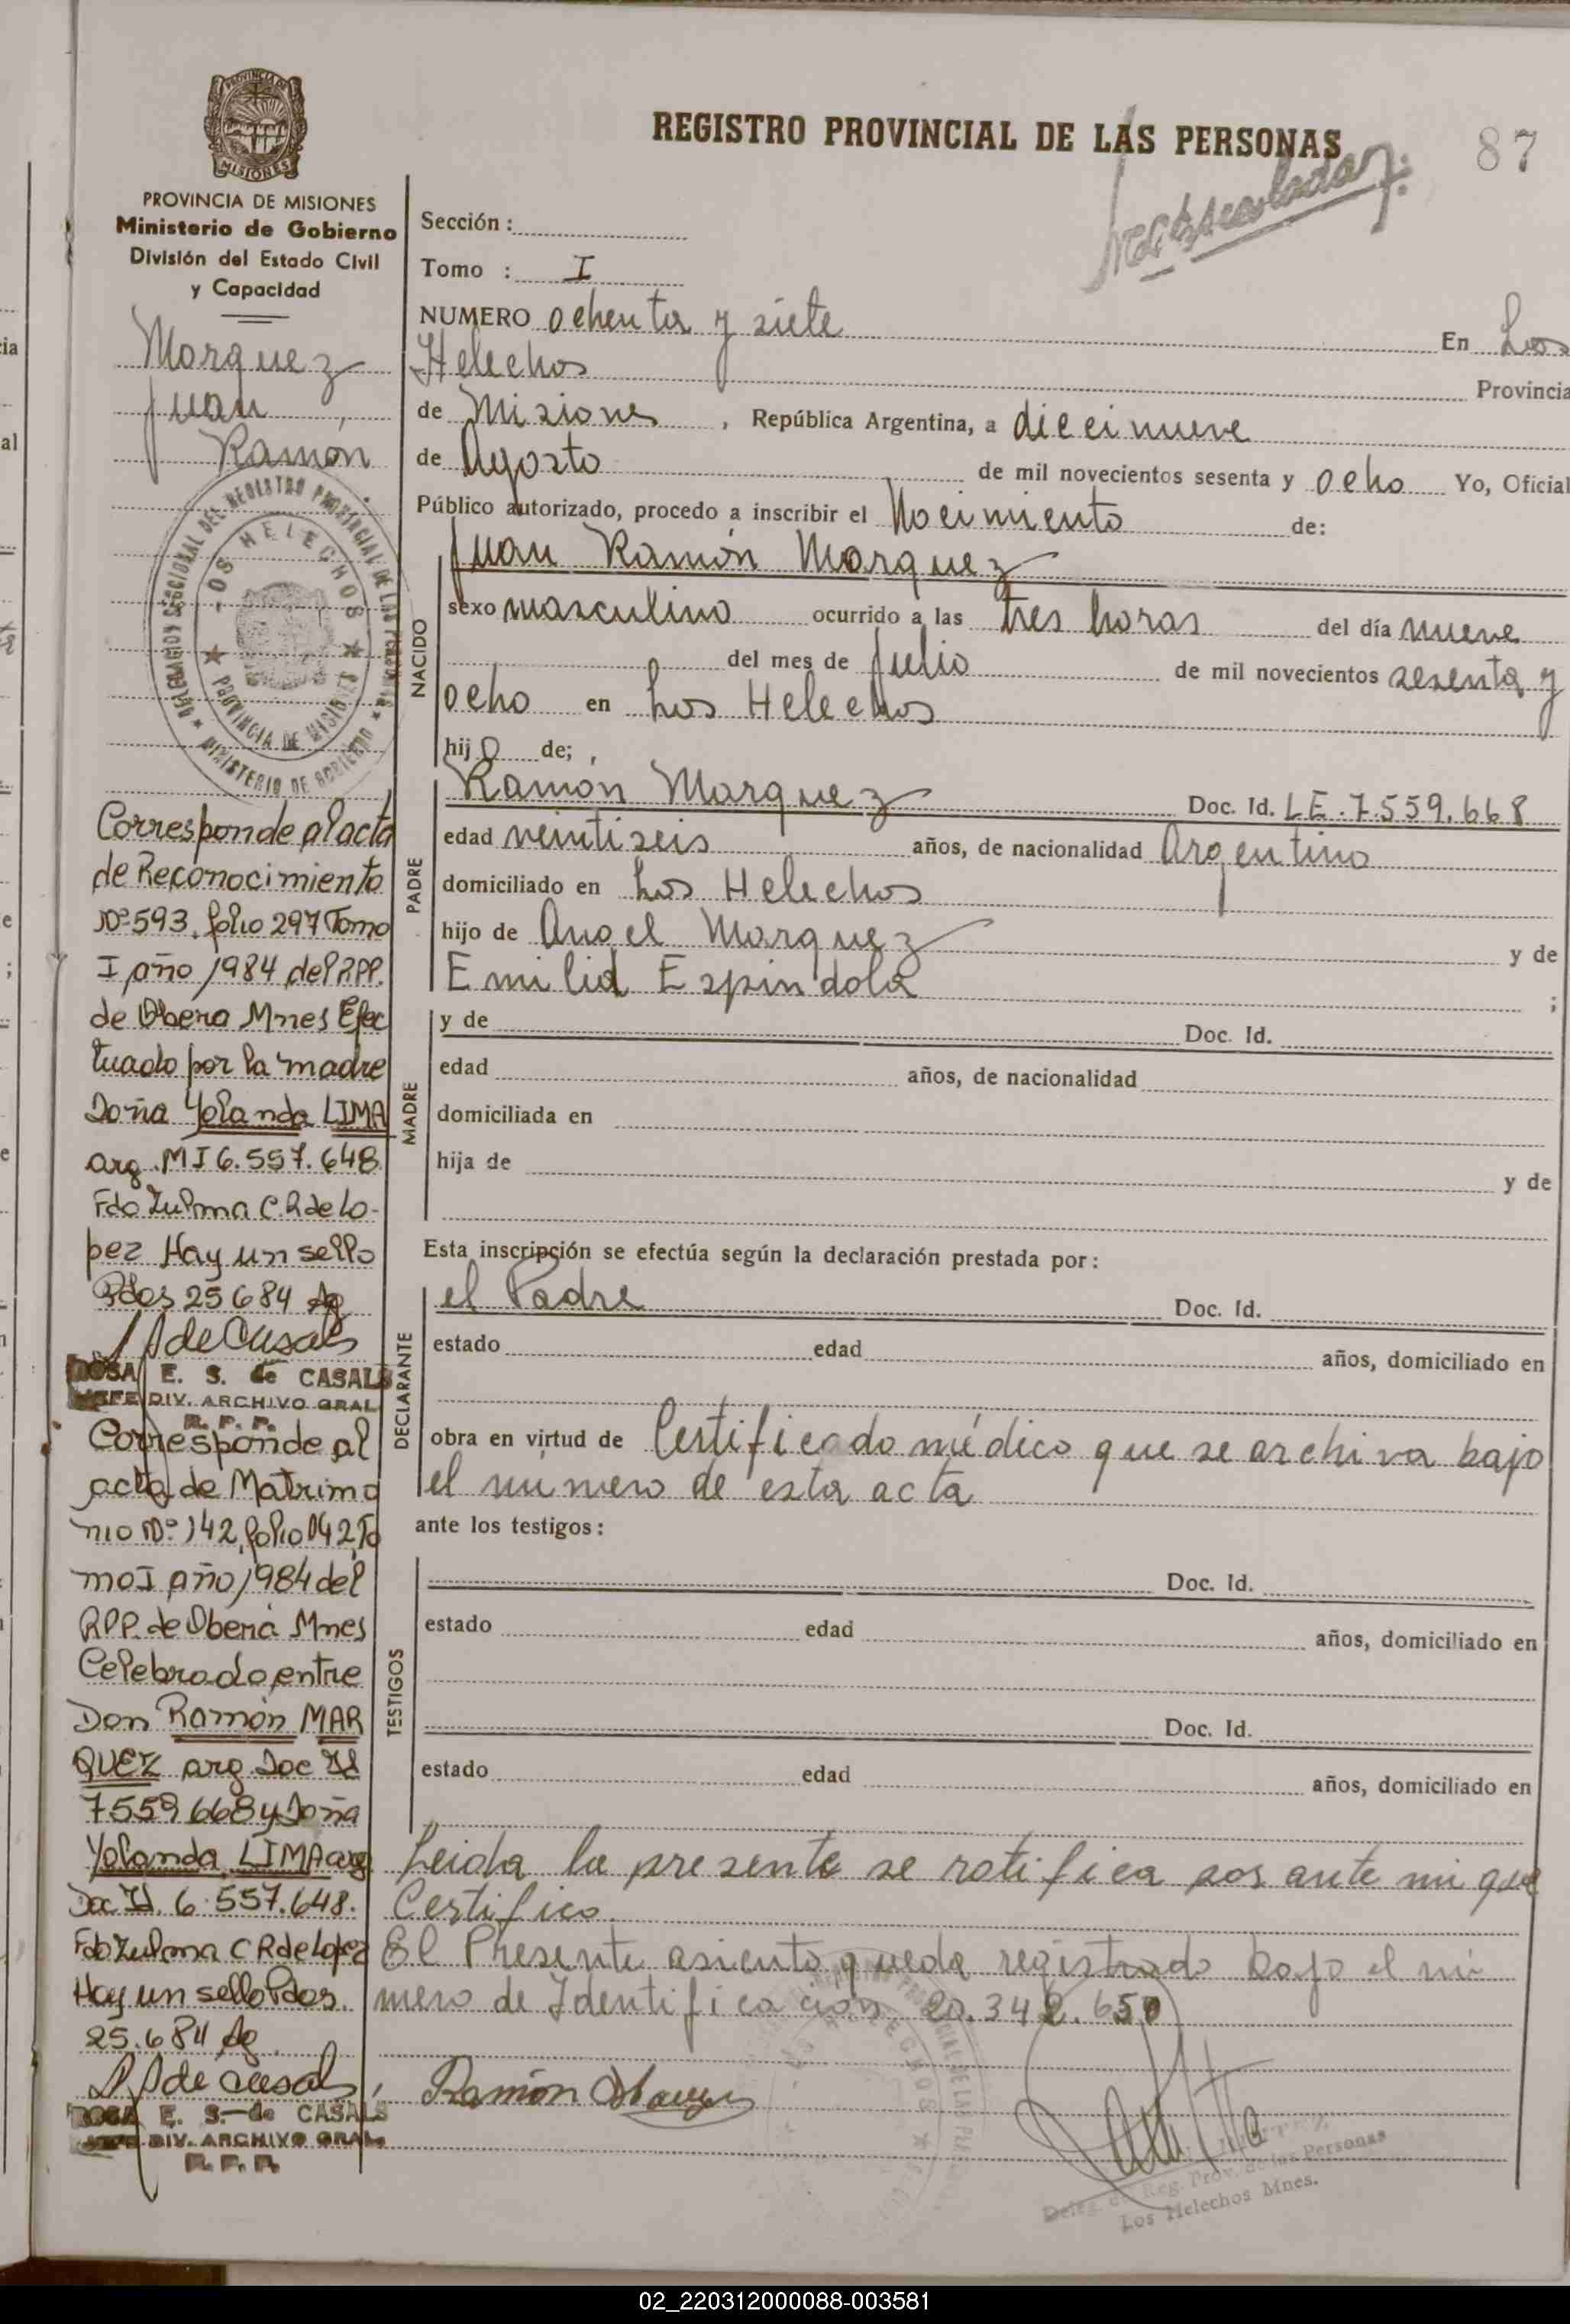 REGISTRO PROVINCIAL DE LAS PERSONAS
87
PROVINCIA DE MISIONES
Ministerio de Gobierno
División del Estado Civil
y Capacidad
Marquez
Juan
Ramón
DELEGACION SECCIONAL DEL REGISTRO PROVINCIAL DE LAS PERSONAS
MINISTERIO DE GOBIERNO
LOS HELECHOS
PROVINCIA DE MISIONES
Corresponde al acta
de Reconocimiento
Nº 593. folio 297 Tomo
I año 1984 del R.P.P.
de Obera Mnes Efec
tuado por la madre
Doña Yolanda LIMA
arg. M I 6.557.648
Fdo Zulma C.R de Lo-
pez Hay un sello
Pdos 25 6 84
ROSA E. S. de CASALS
JEFE DIV. ARCHIVO GRAL
R. P. P.
Corresponde al
acta de Matrimo
nio Nº 142, folio 142 To
mo I año 1984 del
RPP. de Oberá Mnes
Celebrado entre
Don Ramón MAR
QUEZ arg. Doc Id
7559668 y Doña
Yolanda LIMA arg
Doc Id. 6.557.648.
Fdo Zulma C R de Lopez
Hay un sello Pdos.
25.6 84
ROSA E. S. de CASALS
JEFE DIV. ARCHIVO GRAL
R. P. P.
Sección :
Tomo : I
NUMERO ochenta y siete En Los
Helechos Provincia
de Misiones , República Argentina, a diecinueve
de Agosto de mil novecientos sesenta y ocho Yo, Oficial
Público autorizado, procedo a inscribir el Nacimiento de:
NACIDO
Juan Ramón Marquez
sexo masculino ocurrido a las tres horas del día nueve
del mes de Julio de mil novecientos sesenta y
ocho en Los Helechos
hijo de;
PADRE
Ramón Marquez Doc. Id. LE. 7.559.668
edad veintiseis años, de nacionalidad Argentino
domiciliado en Los Helechos
hijo de Angel Marquez y de
Emilia Espindola ;
MADRE
y de Doc. Id.
edad años, de nacionalidad
domiciliada en
hija de y de
Esta inscripción se efectúa según la declaración prestada por:
DECLARANTE
el Padre Doc. Id.
estado edad años, domiciliado en
obra en virtud de Certificado médico que se archiva bajo
el número de esta acta
ante los testigos:
TESTIGOS
Doc. Id.
estado edad años, domiciliado en
Doc. Id.
estado edad años, domiciliado en
Leida la presente se ratifica por ante mi que
Certifico.
El Presente asiento queda registrado bajo el nú
mero de Identificación 20.342.650
Ramón Marquez
Deleg. del Reg. Prov. de las Personas
Los Helechos Mnes.
02_220312000088-003581